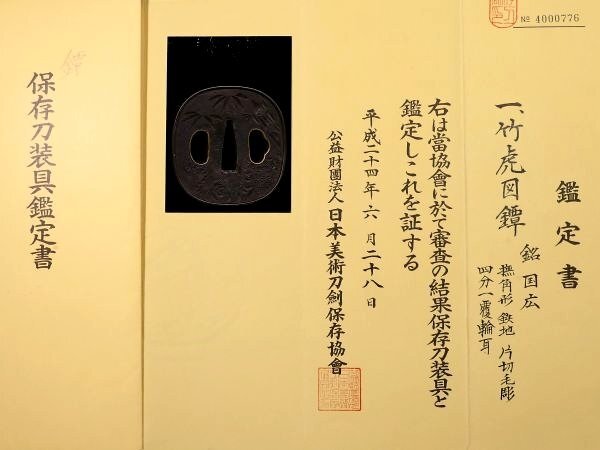 № 4000776
鑑定書
一、竹虎図鐔
銘 国広
撫角形 鉄地 片切毛彫
四分一覆輪耳
右は當協會に於て審査の結果保存刀装具と
鑑定しこれを証する
平成二十四年六月二十八日
公益財團法人 日本美術刀劍保存協會
鐔
保存刀装具鑑定書